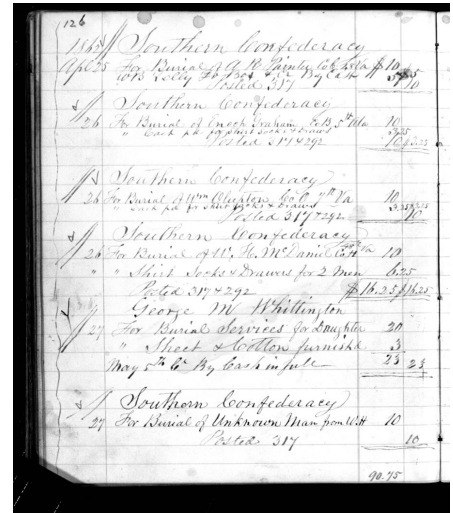 126
1865 Southern Confederacy
Apl 25 For Burial of A. R. Painter Co. Va $10
Posted 317 10
Southern Confederacy
26 For Burial of Enoch Graham Co B 5th Ala 10
" Cash pd for Shirt Socks & Draws
Posted 317 & 292
Southern Confederacy
26 For Burial of Wm Co 7th Va 10
" Cash pd for Shirt Socks & Draws
Posted 317 & 292 10
Southern Confederacy
26 For Burial of W. H. McDaniel Co H Va 10
" Shirt Socks & Drawers for 2 Men 6.25
Posted 317 & 292 $16.25 $16.25
George M Whittington
27 For Burial Services for Daughter 20
" Sheet & Cotton furnishd 3
May 5th Cr By Cash in full 23 23
Southern Confederacy
27 For Burial of Unknown Man from W.H 10
Posted 317 10
90.75